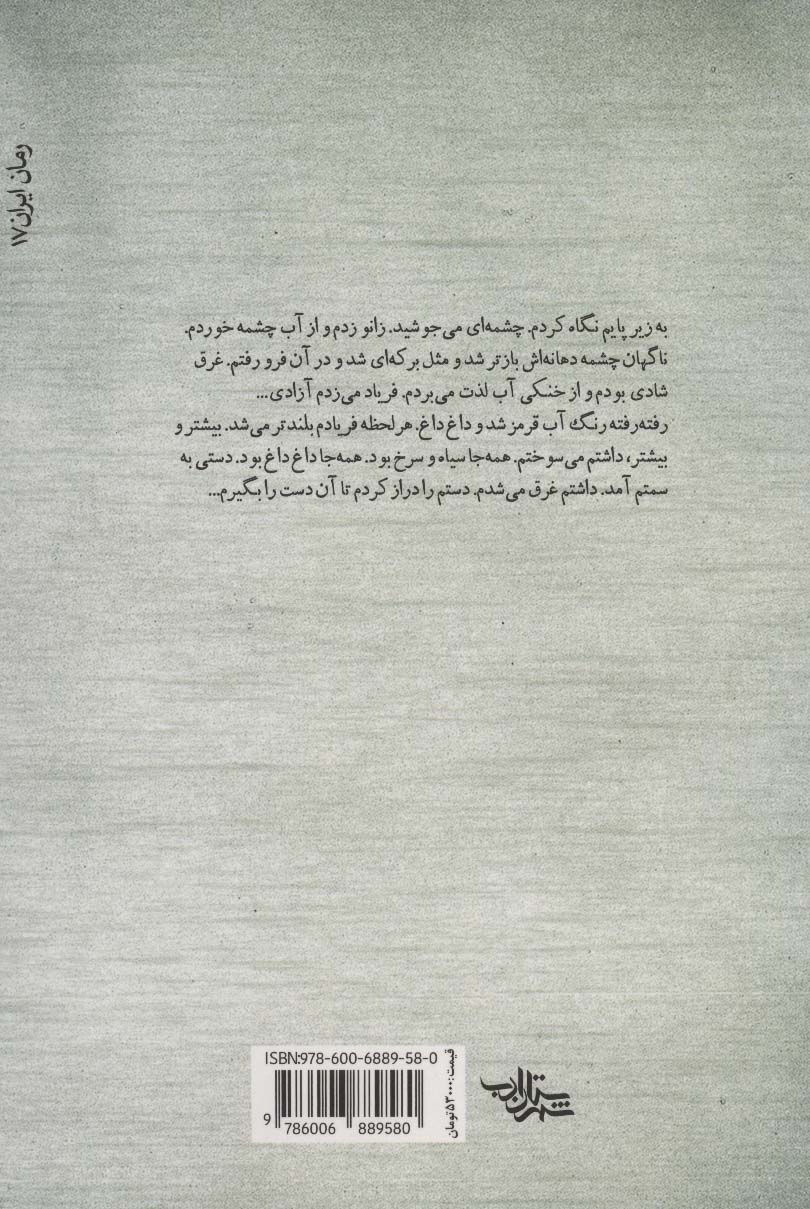 رمان ایران ۱۷
به زیر پایم نگاه کردم. چشمه‌ای می‌جوشید. زانو زدم و از آب چشمه خوردم.
ناگهان چشمه دهانه‌اش بازتر شد و مثل برکه‌ای شد و در آن فرو رفتم. غرق
شادی بودم و از خنکی آب لذت می‌بردم. فریاد می‌زدم آزادی...
رفته‌رفته رنگ آب قرمز شد و داغ داغ. هر لحظه فریادم بلندتر می‌شد. بیشتر و
بیشتر، داشتم می‌سوختم. همه‌جا سیاه و سرخ بود. همه‌جا داغ داغ بود. دستی به
سمتم آمد. داشتم غرق می‌شدم. دستم را دراز کردم تا آن دست را بگیرم...
ISBN:978-600-6889-58-0
9 786006 889580
قیمت: ۵۳۰۰۰ تومان
شهرستان ادب